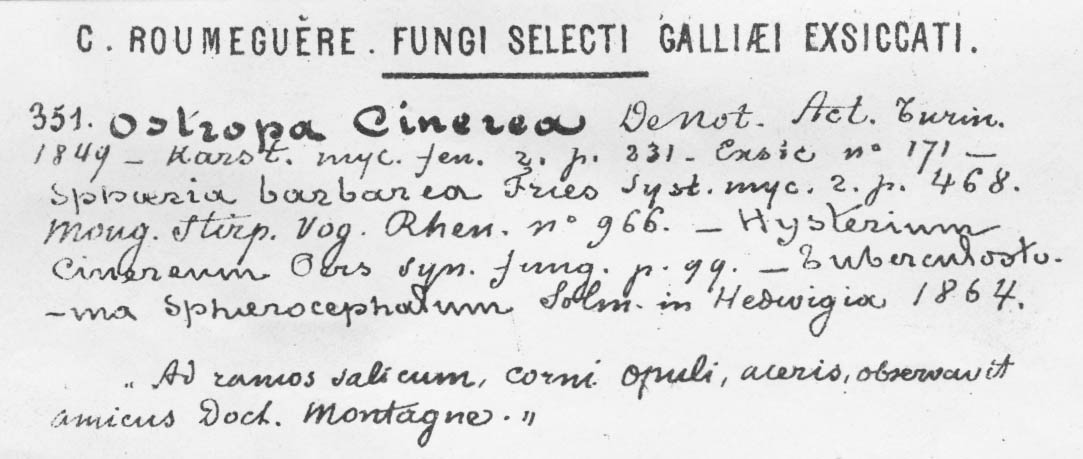 C. ROUMEGUÈRE. FUNGI SELECTI GALLIÆI EXSICCATI.
351. Ostropa Cinerea DeNot. Act. Turin.
1849 – Karst. myc. fen. 2. p. 231 – Exsic nº 171 –
Sphæria barbarea Fries Syst. myc. 2. p. 468.
Moug. Stirp. Vog. Rhen. nº 966. – Hysterium
Cinereum Pers Syn. fung. p. 99. – Tuberculosto-
-ma Sphærocephalum Solm. in Hedwigia 1864.
„ Ad ramos salicum, corni opuli, aceris, observavit
amicus Doct. Montagne. „